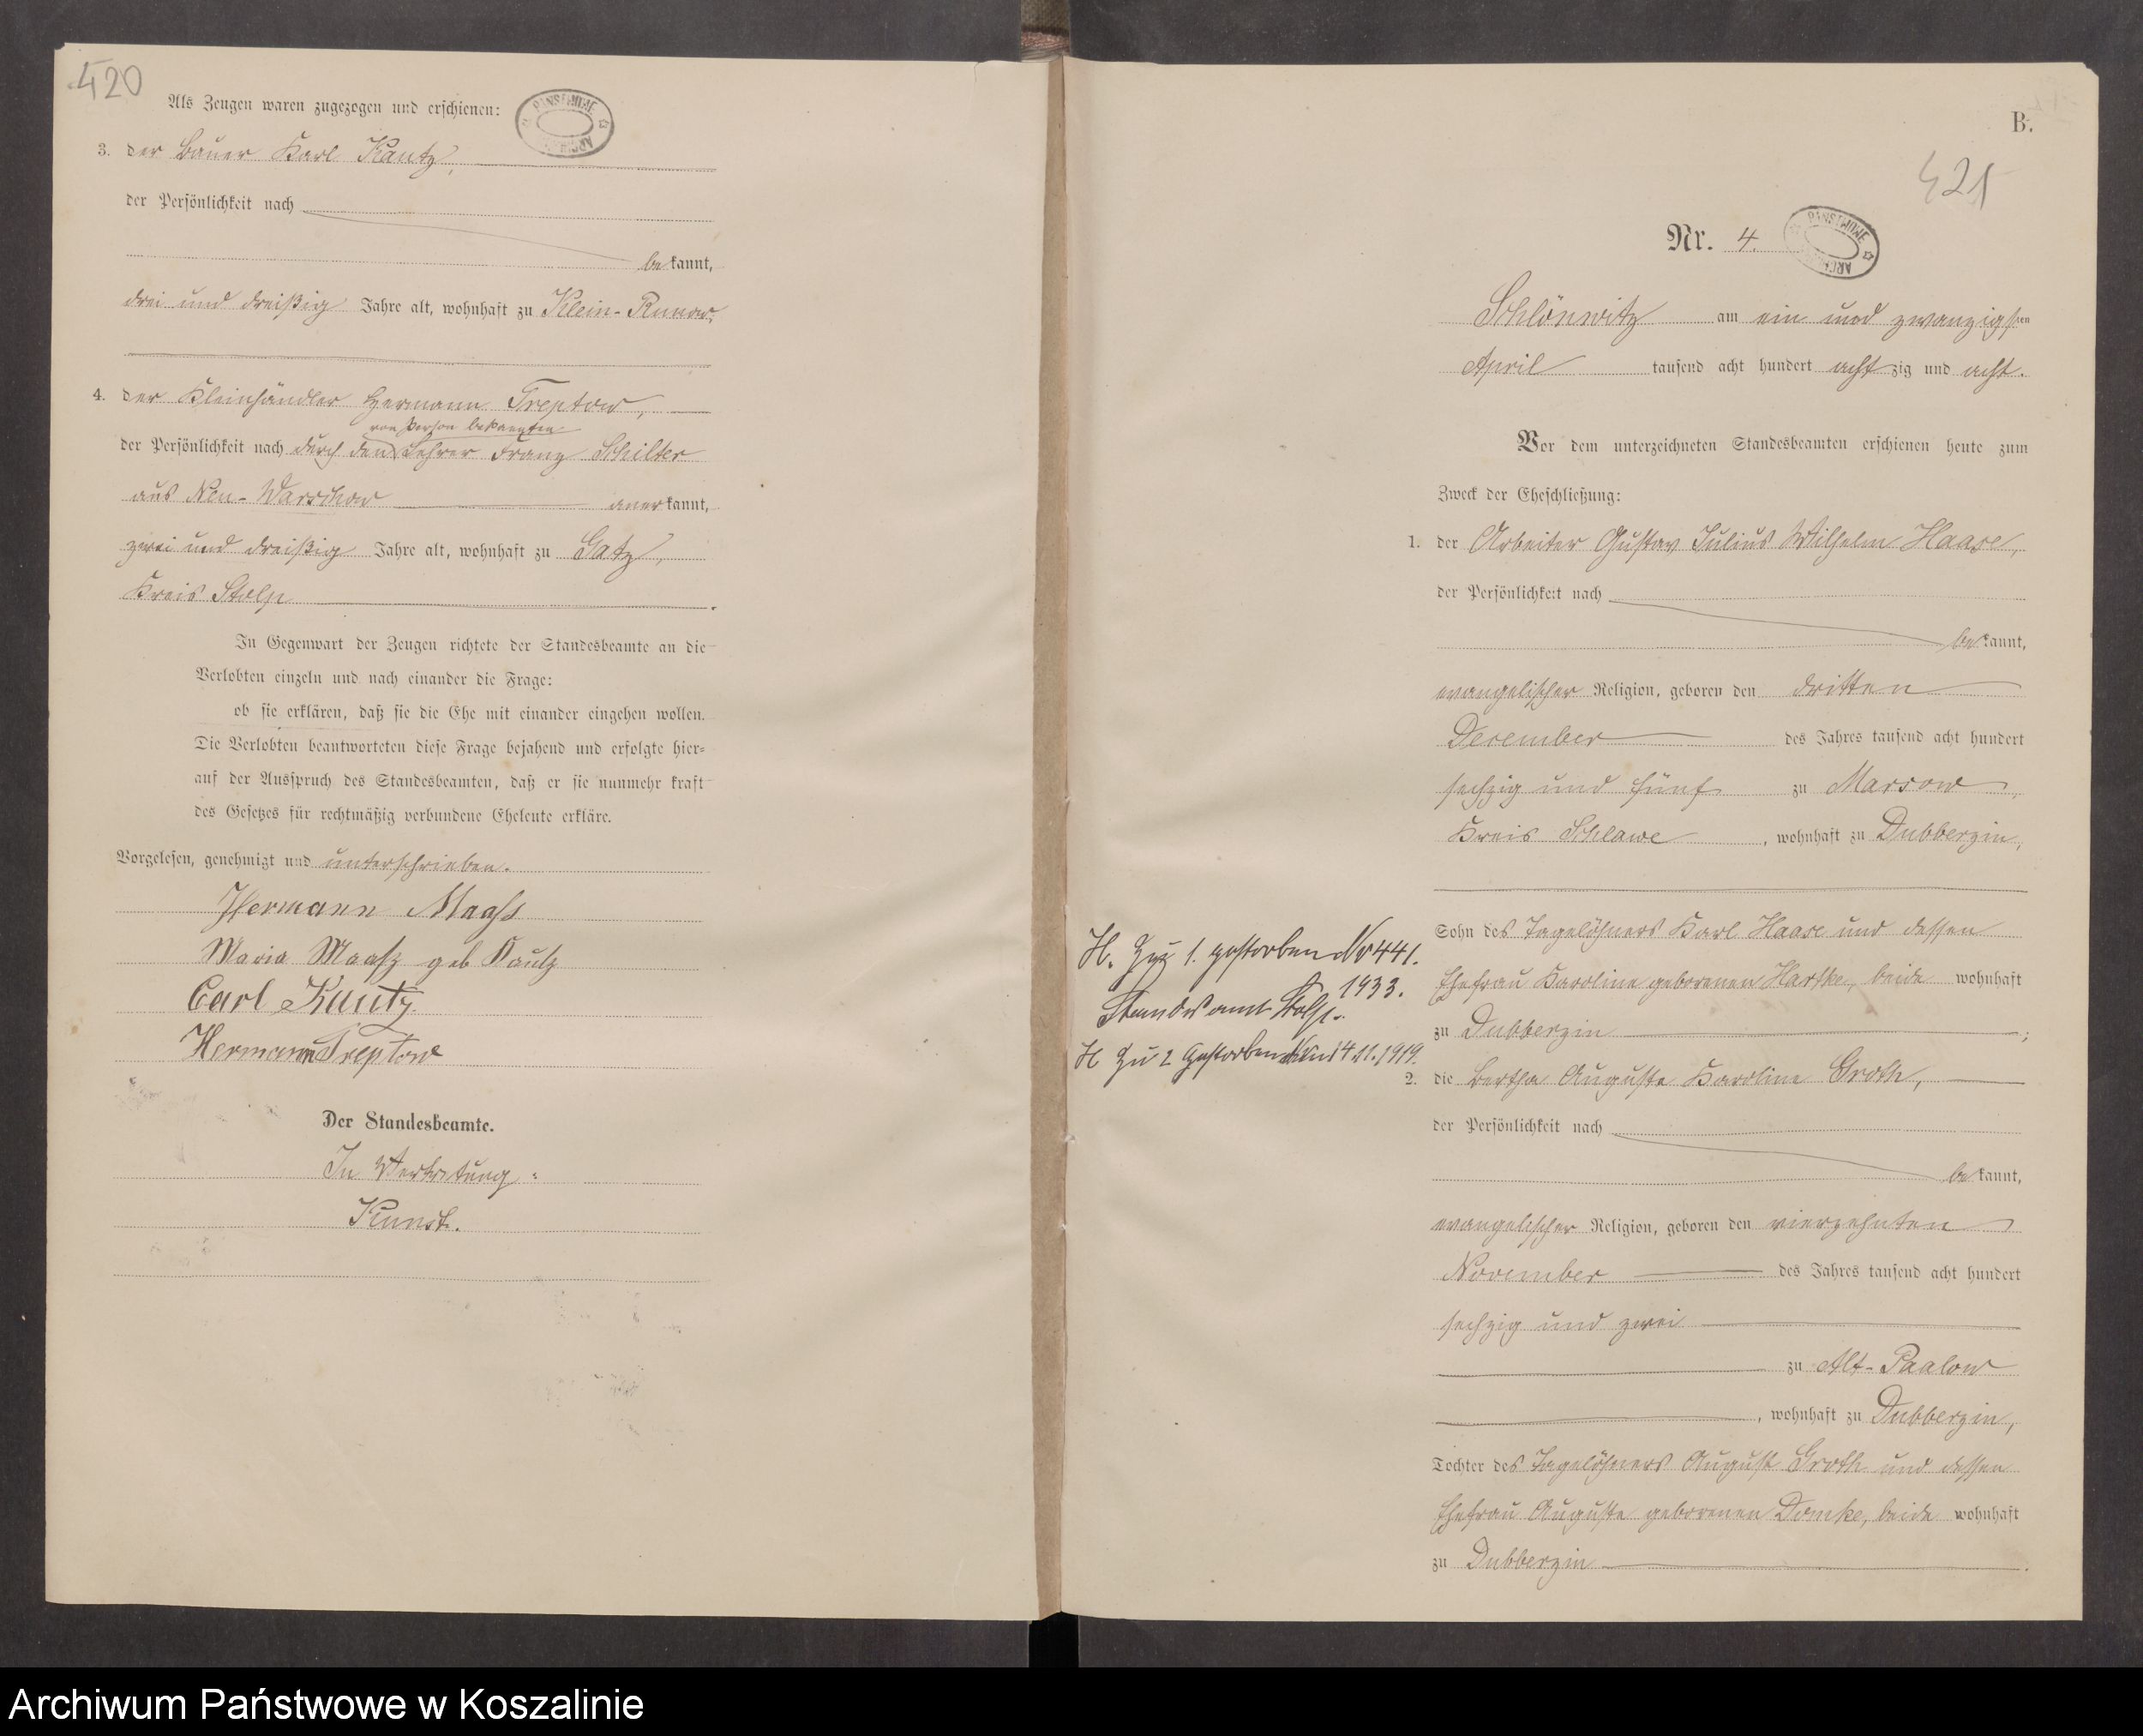 420
Als Zeugen waren zugezogen und erschienen:
PANSTWOWE ARCHIWUM
3. der Bauer Karl Kautz,
der Persönlichkeit nach
bekannt,
drei und dreißig Jahre alt, wohnhaft zu Klein-Runow,
4. der Kleinhändler Hermann Treptow,
von Person bekannten
der Persönlichkeit nach durch den Lehrer Franz Schilter
aus Neu-Warschow anerkannt,
zwei und dreißig Jahre alt, wohnhaft zu Gatz,
Kreis Stolp.
In Gegenwart der Zeugen richtete der Standesbeamte an die
Verlobten einzeln und nach einander die Frage:
ob sie erklären, daß sie die Ehe mit einander eingehen wollen.
Die Verlobten beantworteten diese Frage bejahend und erfolgte hier-
auf der Ausspruch des Standesbeamten, daß er sie nunmehr kraft
des Gesetzes für rechtmäßig verbundene Eheleute erkläre.
Vorgelesen, genehmigt und unterschrieben.
Hermann Maaß
Maria Maaß geb Kautz
Carl Kautz.
Hermann Treptow
Der Standesbeamte.
In Vertretung:
Kunst.
B.
421
Nr. 4.
PANSTWOWE ARCHIWUM
Schlönwitz am ein und zwanzigsten
April tausend acht hundert achtzig und acht.
Vor dem unterzeichneten Standesbeamten erschienen heute zum
Zweck der Eheschließung:
1. der Arbeiter Gustav Julius Wilhelm Haase,
der Persönlichkeit nach
bekannt,
evangelischer Religion, geboren den dritten
Dezember des Jahres tausend acht hundert
sechzig und fünf zu Marsow,
Kreis Schlawe, wohnhaft zu Dubberzin,
Sohn des Tagelöhners Karl Haase und dessen
Ehefrau Karoline geborenen Hartke, beide wohnhaft
zu Dubberzin;
H. Zu 1. gestorben Nr 441.
1933.
Standesamt Stolp.
H Zu 2 gestorben am 14.11.1919.
2. die Bertha Auguste Karoline Groth,
der Persönlichkeit nach
bekannt,
evangelischer Religion, geboren den vierzehnten
November des Jahres tausend acht hundert
sechzig und zwei
zu Alt-Paalow
, wohnhaft zu Dubberzin,
Tochter des Tagelöhners August Groth und dessen
Ehefrau Auguste geborenen Domke, beide wohnhaft
zu Dubberzin.
Archiwum Państwowe w Koszalinie